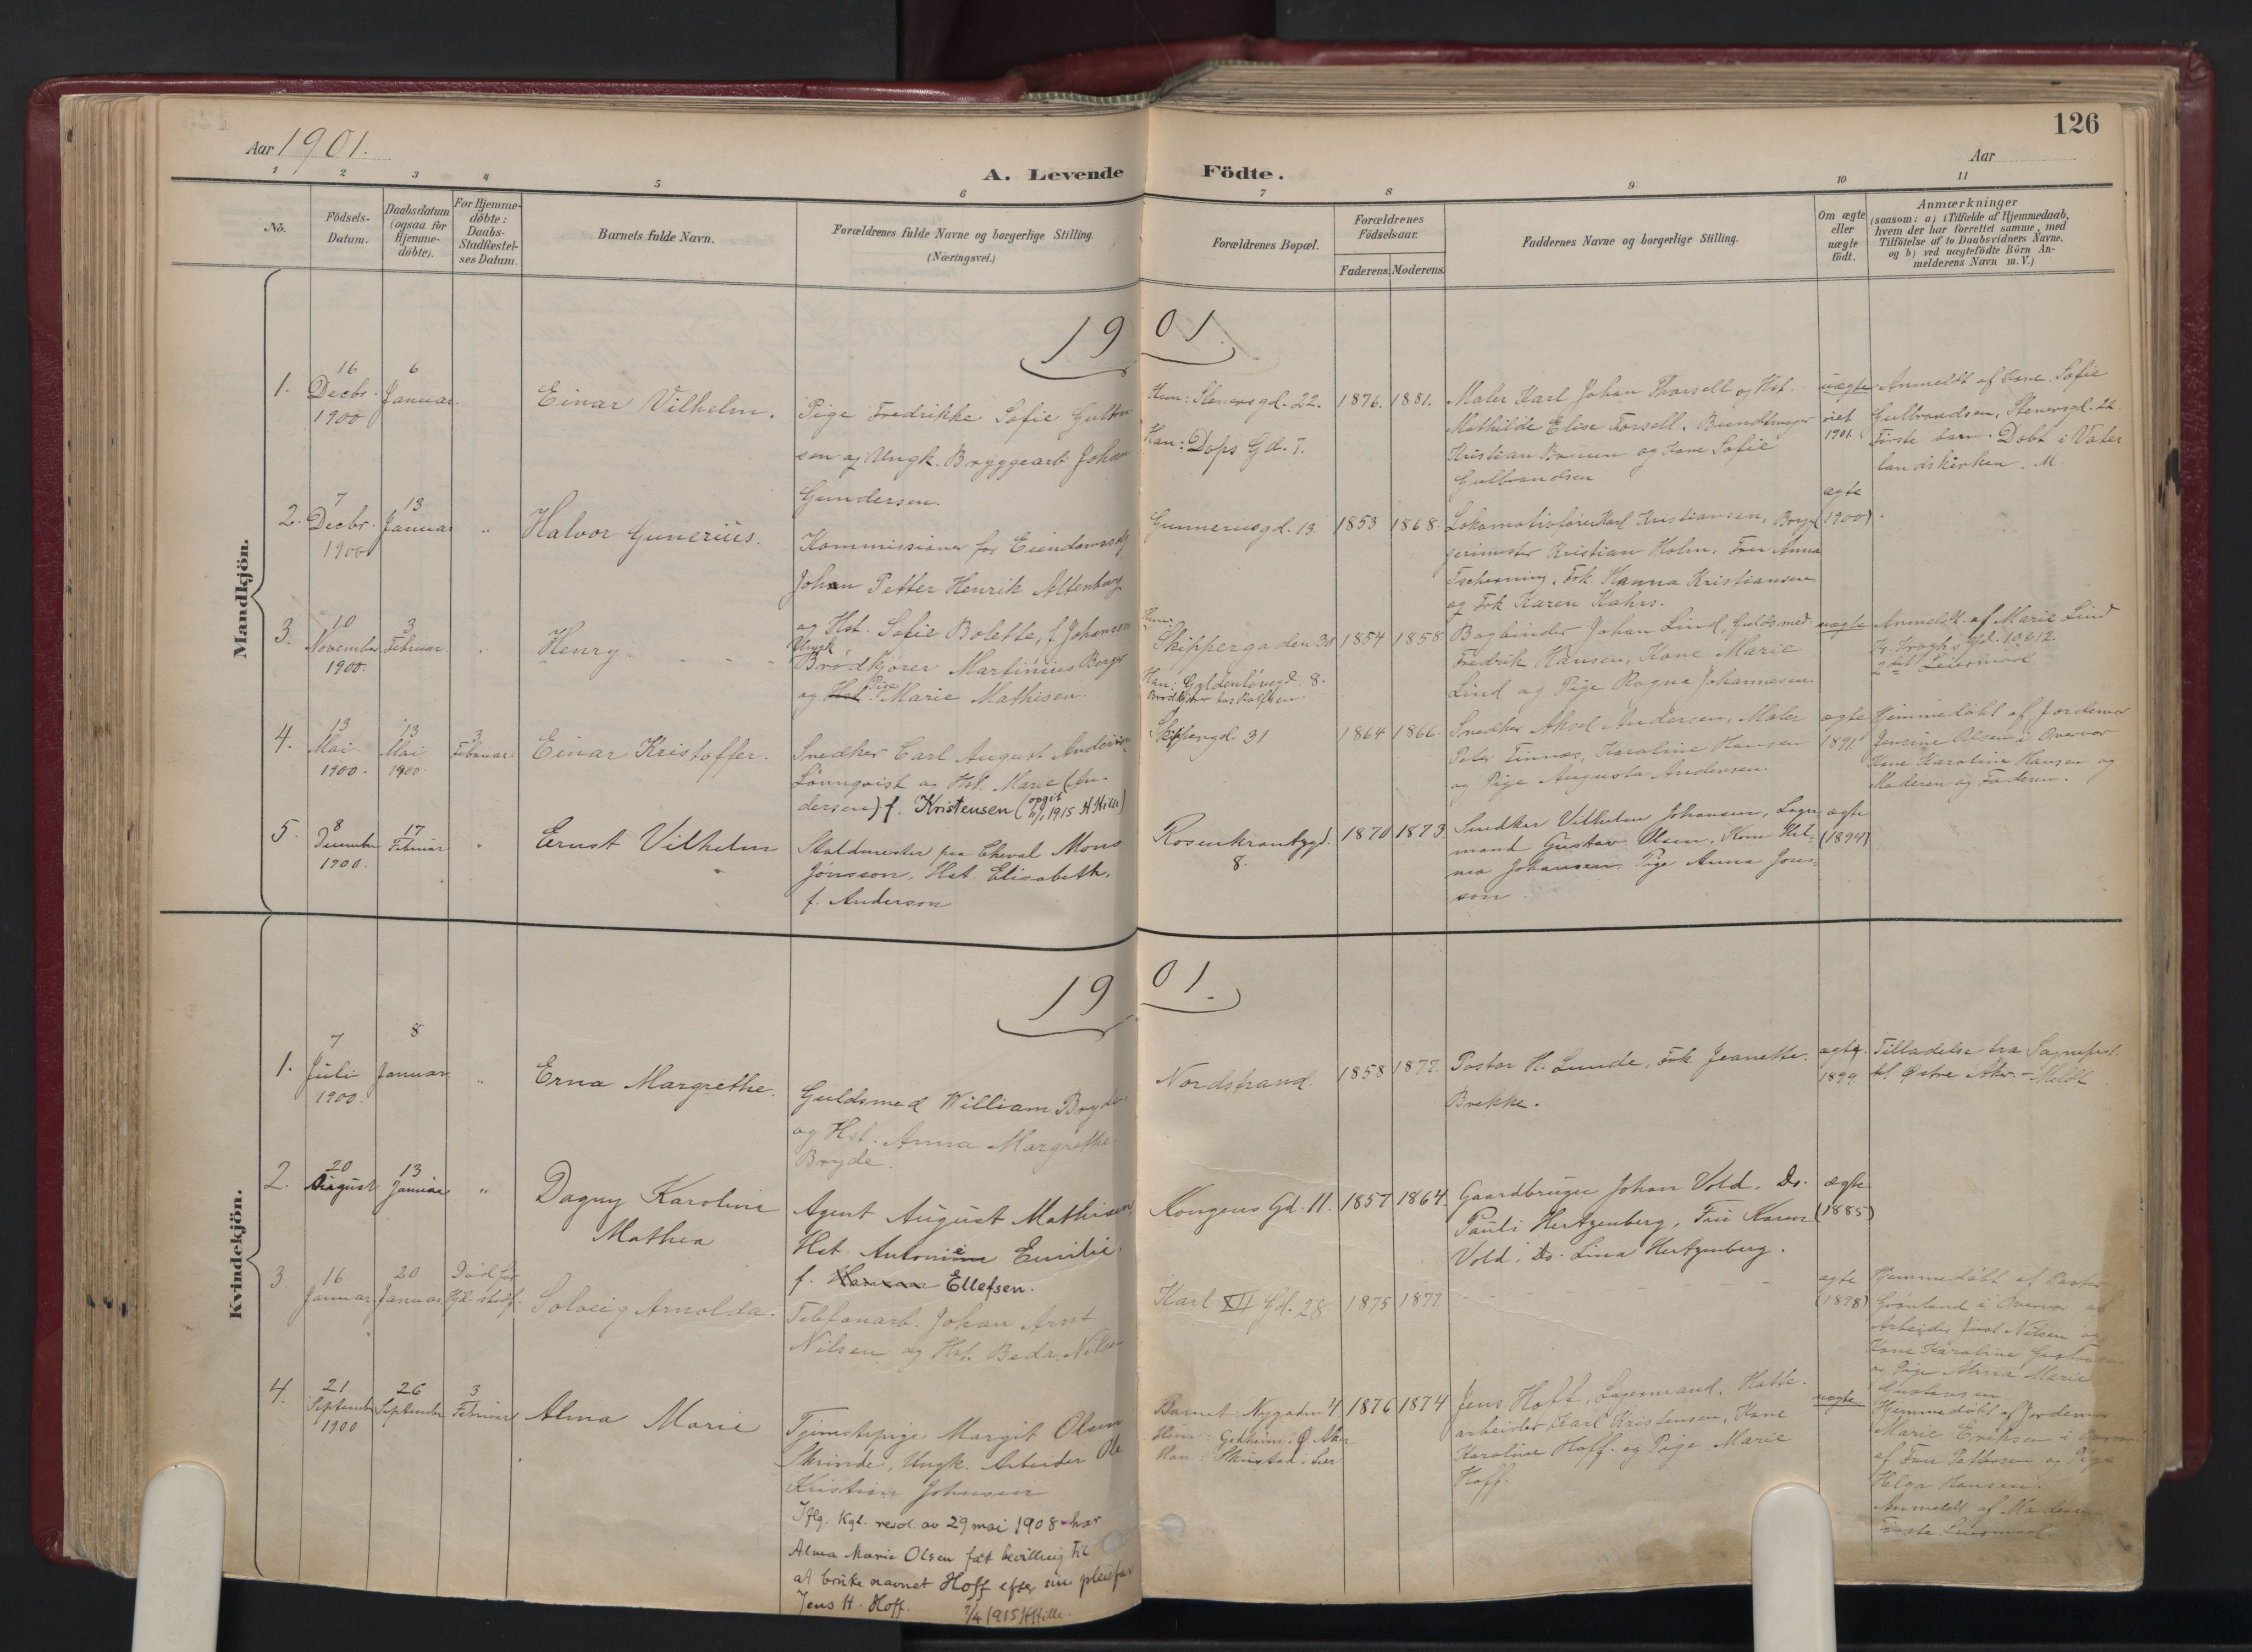 126
Aar 1901.
Aar
A. Levende Födte.
1 2 3 4 5 6 7 8 9 10 11
Nö.
Födsels-
Datum.
Daabsdatum
(ogsaa for
Hjemme-
döbte).
For Hjemme-
döbte:
Daabs-
Stadfæstel-
ses Datum.
Barnets fulde Navn.
Forældrenes fulde Navne og borgerlige Stilling.
(Næringsvei.)
Forældrenes Bopæl.
Forældrenes
Födselsaar.
Faderens.
Moderens.
Faddernes Navne og borgerlige Stilling.
Om ægte
eller
uægte
födt.
Anmærkninger
(saasom: a) i Tilfælde af Hjemmedaab,
hvem der har forrettet samme, med
Tilföielse af to Daabsvidners Navne.
og b) ved uægtefödte Börn An-
melderens Navn m. V.)
Mandkjön.
1901.
1.
16
Decbr.
1900
6
Januar.
Einar Vilhelm.
Pige Fredrikke Sofie
sen og Ungk. Bryggearb. Johan
Gundersen.
Hun: Stenersgd. 22.
Han: Dops Gd. 7.
1876. 1881.
Maler Karl Johan Thorsell og Hst.
Mathilde Elise Forsell. Bundtmager
Kristian og Kone Sofie
Gulbrandsen
uægte
1901.
Anmeldt af Kone Sofie
Gulbrandsen, Stenersgd. 22
Første barn. Døbt i Vater
landskirken. M.
2.
7
Decbr.
1900
13
Januar
"
Halvor Gunerius.
Kommissionær for
Johan Petter Henrik Altenburg
og Hst. Sofie Bolette, f. Johansen
Gunnerusgd. 13.
1853 1868.
Lokomotivfører Karl Kristiansen, Bryg
gerimester Kristian Holm, Fru Anna
Tscherning, Frk. Hanna Kristiansen
og Frk Karen Kahrs.
ægte
(1900)
3.
10
November
1900.
3
Februar.
"
Henry
Ungk
Brødkjører Martinius Berger
og Hst. Pige Marie Mathisen.
Hun:
Skippergaden 30
Han: Gyldenløvegd 8.
1854 1858
Bogbinder Johan Lind, Guldsmed
Fredrik Hansen, Kone Marie
Lind og Pige Ragna Johannesen
uægte
Anmeldt af Marie Lind
2det Leiermaal.
4.
13
Mai
1900.
13
Mai
1900.
3
Februar.
Einar Kristoffer.
Snedker Carl August Andersen
Lönnqvist og Hst. Marie (An-
dersen) f. Kristensen (opgit
1915 H Hille)
Skippergd 31
1864 1866.
Snedker Aksel Andersen, Maler
Peter Finnæs, Karoline Hansen
og Pige Augusta Andersen.
ægte
1891
Hjemmedöbt af Jordemor
Jensine Olsen i Overvær
Kone Karoline Hansen og
Moderen og Faderen.
5.
8
December
1900.
17
Februar
"
Ernst Vilhelm
Staldmester paa Cheval Mons
Jönsson, Hst. Elisabeth,
f. Anderson
Rosenkrantzgd.
8.
1870 1873.
Snedker Vilhelm Johansen, Lager
mand Gustav Olsen, Kone Hil-
ma Johansen, Pige Anna Jons-
son.
ægte
(1894)
Kvindekjön.
1901.
1.
7
Juli
1900.
8
Januar
"
Erna Margrethe.
Guldsmed William Bryde
og Hst. Anna Margrethe
Bryde.
Nordstrand.
1858 1877.
Pastor H. Lunde, Frk. Jeanette
Brekke.
ægte.
1899.
Tilladelse fra Sognepr.
til Østre Aker. – Meldt
2.
20
August
13
Januar
"
Dagny Karoline
Mathea
Agent August Mathisen,
Hst. Antonie Emilie.
f. Ellefsen.
Kongens Gd. 11.
1857 1864.
Gaardbruger Johan Vold. Do.
Pauli Hertzenberg, Fru Karen
Vold. Do. Lina Hertzenberg.
ægte
(1885)
3.
16
Januar
20
Januar
Död før
Solveig Arnolda.
Telefonarb. Johan Arnt
Nilsen og Hst. Beda Nilsen
Karl XII Gd. 28
1875 1877
ægte
(1898)
Hjemmedöbt af Pastor
Grønland i Overvær af
Arbeider Nilsen og
Kone Karoline
og Pige Alma Marie
Gustavsen
4.
21
September
1900
26
September
3
Februar
Alma Marie
Tjenestepige Margit Olsen
Skrinde, Ungk. Arbeider Ole
Kristian Johnsen
Iflg. Kgl. resol. av 29 mai 1908 har
Alma Marie Olsen fåt bevilling til
at bruke navnet Hoff efter sin pleiefar
Jens H. Hoff. 7/4 1915 H Hille
Barnet: Nygaden 4
Hun: Ø. Aker
Han: Lier
1876 1874
Jens Hoff, Lagermand, Hatte-
arbeider Karl Kristensen, Kone
Karoline Hoff og Pige Marie
Hoff.
uægte
Hjemmedöbt af Jordemor
Marie Eriksen i Overvær
af Fru Pettersen og Pige
Helga Hansen.
Anmeldt af Moderen
Første Leiermaal.